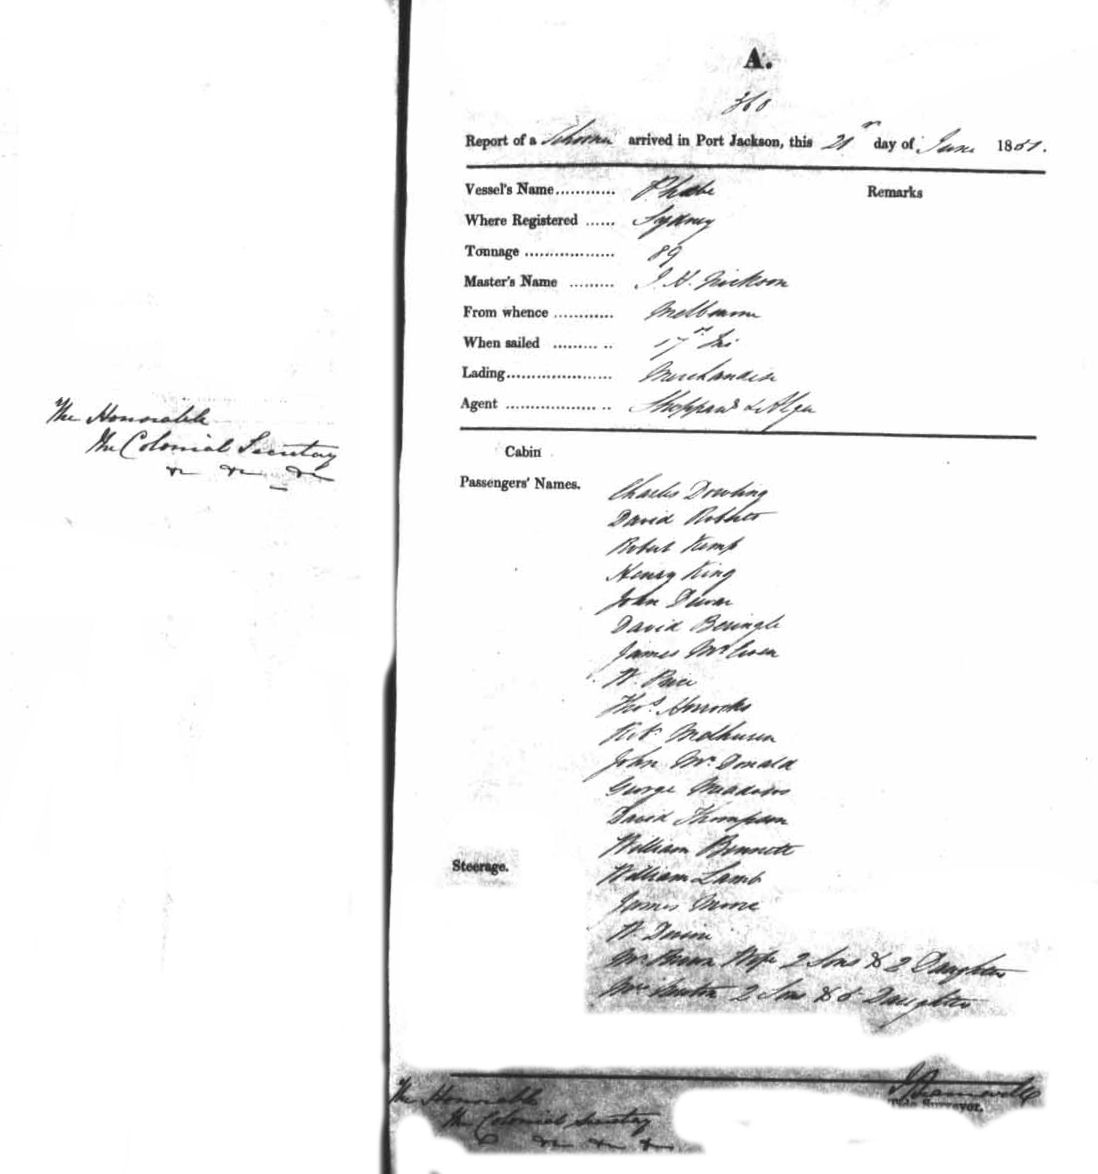 The Honorable
The Colonial Secretary
A.
360
Report of a Schooner arrived in Port Jackson, this 21st day of June 1851.
Vessel's Name............ Phebe
Remarks
Where Registered ...... Sydney
Tonnage .................. 89
Master's Name ......... J. H.
From whence ............ Melbourne
When sailed ......... .. 17th
Lading..................... Merchandise
Agent .................. .. Sheppard & Alger
Cabin
Passengers' Names.
Charles Dowling
David Roberts
Robert Kemp
Henry King
John Dewar
David
James McEwen
W. Price
Thos. Horrocks
John McDonald
George Meadows
David Thompson
William Bennett
Steerage.
William Lamb
James Moore
W.
Mr Wife 2 Sons & 2 Daughters
Mrs 2 Sons & 6 Daughters
Tide Surveyor.
The Honorable
The Colonial Secretary